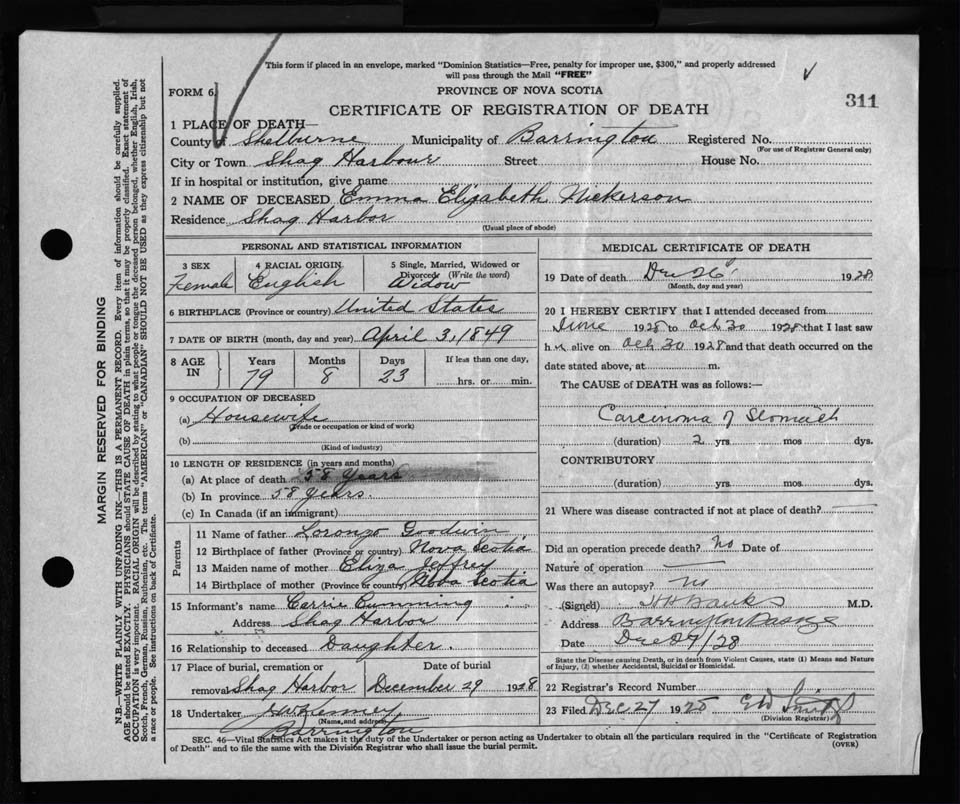 This form if placed in an envelope, marked "Dominion Statistics—Free, penalty for improper use, $300," and properly addressed
will pass through the Mail "FREE"
FORM 6.
PROVINCE OF NOVA SCOTIA
311
CERTIFICATE OF REGISTRATION OF DEATH
1 PLACE OF DEATH—
County of Shelburne Municipality of Barrington Registered No.
(For use of Registrar General only)
City or Town Shag Harbour Street House No.
If in hospital or institution, give name
2 NAME OF DECEASED Emma Elizabeth Nickerson
Residence Shag Harbor
(Usual place of abode)
PERSONAL AND STATISTICAL INFORMATION
3 SEX 4 RACIAL ORIGIN 5 Single, Married, Widowed or
Divorced (Write the word)
Female English Widow
6 BIRTHPLACE (Province or country) United States
7 DATE OF BIRTH (month, day and year) April 3, 1849
8 AGE IN Years Months Days If less than one day,
79 8 23 hrs. or min.
9 OCCUPATION OF DECEASED
(a) Housewife
(Trade or occupation or kind of work)
(b)
(Kind of industry)
10 LENGTH OF RESIDENCE (in years and months)
(a) At place of death 58 Years
(b) In province 58 Years.
(c) In Canada (if an immigrant)
Parents
11 Name of father Loronzo Goodwin
12 Birthplace of father (Province or country) Nova Scotia
13 Maiden name of mother Eliza Jeffrey
14 Birthplace of mother (Province or country) Nova Scotia
15 Informant's name Carrie Cumming
Address Shag Harbor
16 Relationship to deceased Daughter.
17 Place of burial, cremation or Date of burial
removal Shag Harbor December 29 1928
18 Undertaker
(Name and address)
Barrington
MEDICAL CERTIFICATE OF DEATH
19 Date of death Dec 26 1928
(Month, day and year)
20 I HEREBY CERTIFY that I attended deceased from
June 1928 to Oct. 30 1928 that I last saw
h alive on Oct. 30 1928 and that death occurred on the
date stated above, at m.
The CAUSE of DEATH was as follows:—
Carcinoma of Stomach
(duration) 2 yrs. mos dys.
CONTRIBUTORY
(duration) yrs. mos. dys.
21 Where was disease contracted if not at place of death?
Did an operation precede death? no Date of
Nature of operation
Was there an autopsy? no
(Signed) H H Banks M.D.
Address Barrington Passage
Date Dec 27/28
State the Disease causing Death, or in death from Violent Causes, state (1) Means and Nature
of Injury, (2) whether Accidental, Suicidal or Homicidal.
22 Registrar's Record Number
23 Filed Dec 27 1928 E W Smith
(Division Registrar)
SEC. 46—Vital Statistics Act makes it the duty of the Undertaker or person acting as Undertaker to obtain all the particulars required in the "Certificate of Registration
of Death" and to file the same with the Division Registrar who shall issue the burial permit.
(OVER)
MARGIN RESERVED FOR BINDING
N.B.—WRITE PLAINLY, WITH UNFADING INK—THIS IS A PERMANENT RECORD. Every item of information should be carefully supplied.
AGE should be stated EXACTLY. PHYSICIANS should STATE CAUSE OF DEATH in plain terms, so that it may be properly classified. Exact statement of
OCCUPATION is very important. RACIAL ORIGIN will be described by stating to what people or tongue the deceased person belonged, whether English, Irish,
Scotch, French, German, Russian, Ruthenian, etc. The terms "AMERICAN" or "CANADIAN" SHOULD NOT BE USED as they express citizenship but not
a race or people. See instructions on back of Certificate.